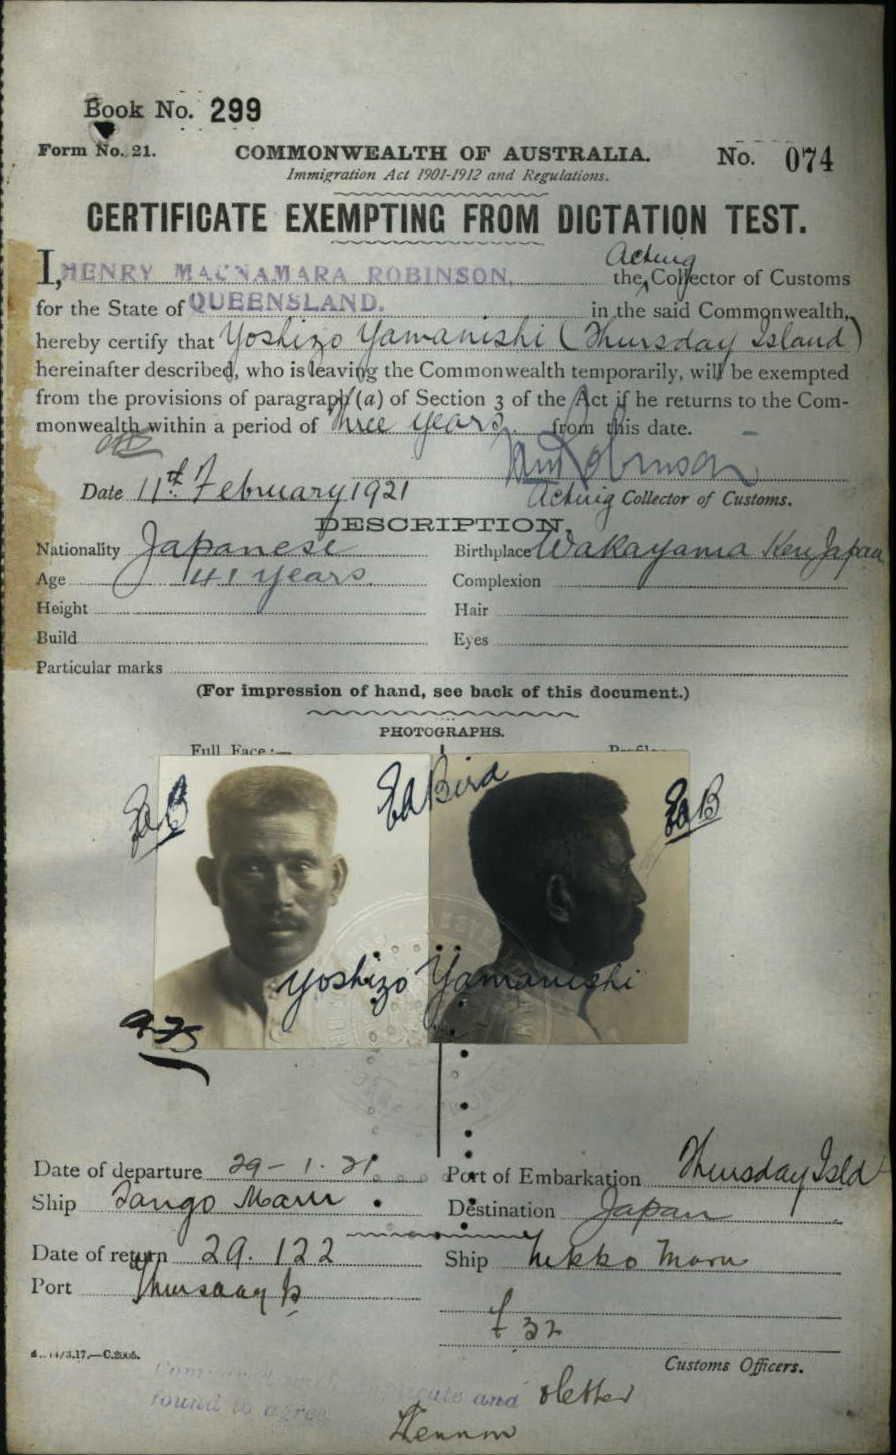 Book No. 299
Form No. 21.
COMMONWEALTH OF AUSTRALIA.
No. 074
Immigration Act 1901-1912 and Regulations.
CERTIFICATE EXEMPTING FROM DICTATION TEST.
Acting
I, HENRY MACNAMARA ROBINSON, the Collector of Customs
for the State of QUEENSLAND. in the said Commonwealth,
hereby certify that Yoshizo Yamanishi (Thursday Island)
hereinafter described, who is leaving the Commonwealth temporarily, will be exempted
from the provisions of paragraph (a) of Section 3 of the Act if he returns to the Com-
monwealth within a period of Three years from this date.
Robinson
Date 11th February 1921
Acting Collector of Customs.
DESCRIPTION.
Nationality Japanese
Birthplace Wakayama Ken Japan
Age 41 years
Complexion
Height
Hair
Build
Eyes
Particular marks
(For impression of hand, see back of this document.)
PHOTOGRAPHS.
Full Face:—
EaB
Ea Bird
EaB
Yoshizo Yamanishi
Date of departure 29-1.21
Port of Embarkation Thursday Isld
Ship Tango Maru
Destination Japan
Date of return 29.122
Ship Nikko Maru
Port Thursday Is
£32
14/3.17.—C.2005.
Customs Officers.
and
found to agree